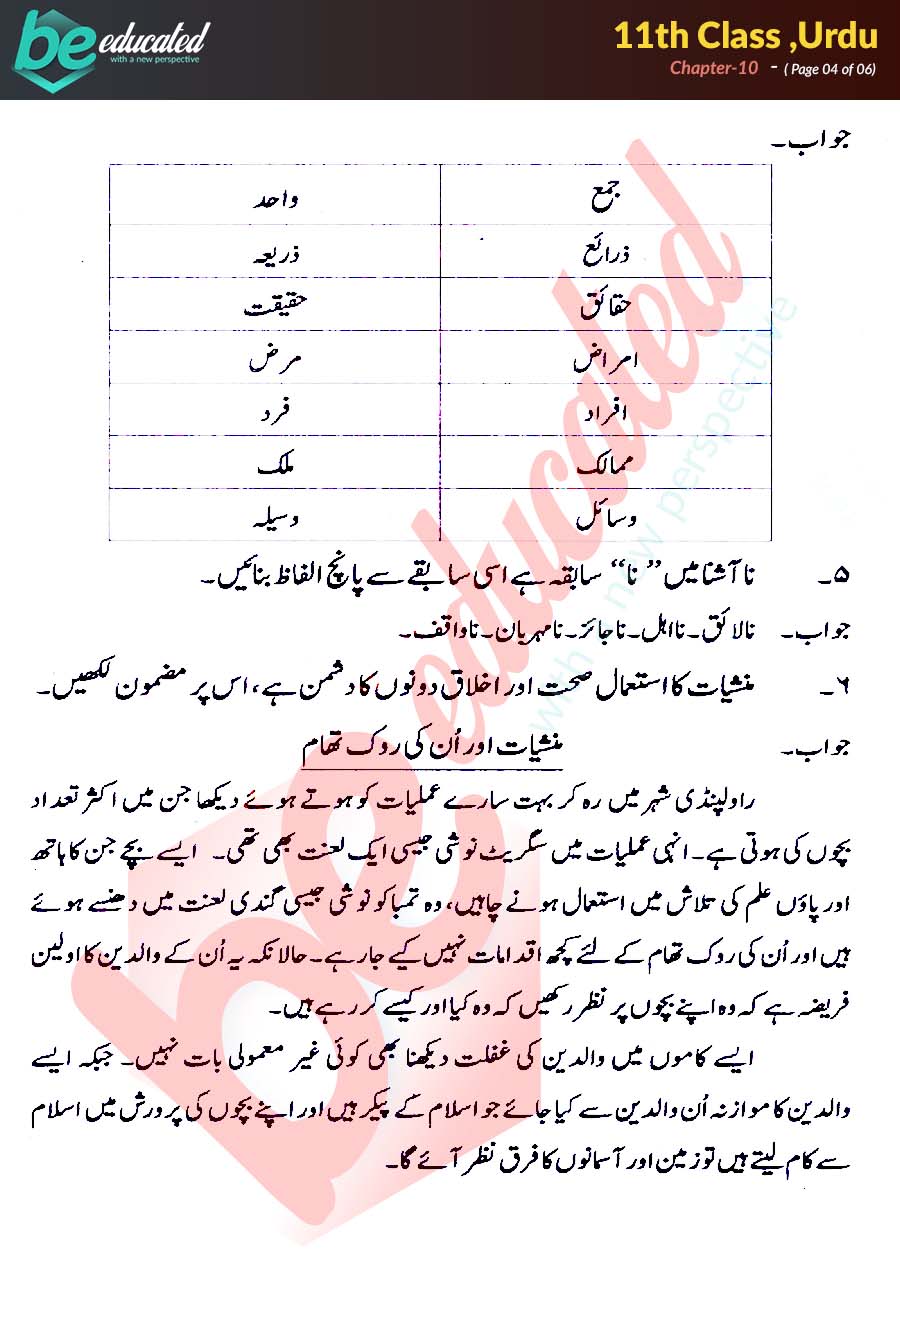 be educated
with a new perspective
11th Class ,Urdu
Chapter-10 - ( Page 04 of 06)
جواب۔
جمع واحد
ذرائع ذریعہ
حقائق حقیقت
امراض مرض
افراد فرد
ممالک ملک
وسائل وسیلہ
۵۔ نا آشنا میں ”نا“ سابقہ ہے اسی سابقے سے پانچ الفاظ بنائیں۔
جواب۔ نالائق۔ نااہل۔ ناجائز۔ نامہربان۔ ناواقف۔
۶۔ منشیات کا استعمال صحت اور اخلاق دونوں کا دشمن ہے، اس پر مضمون لکھیں۔
جواب۔ منشیات اور اُن کی روک تھام
راولپنڈی شہر میں رہ کر بہت سارے عملیات کو ہوتے ہوئے دیکھا جن میں اکثر تعداد
بچوں کی ہوتی ہے۔ انہی عملیات میں سگریٹ نوشی جیسی ایک لعنت بھی تھی۔ ایسے بچے جن کا ہاتھ
اور پاؤں علم کی تلاش میں استعمال ہونے چاہیں، وہ تمباکو نوشی جیسی گندی لعنت میں دھنسے ہوئے
ہیں اور اُن کی روک تھام کے لئے کچھ اقدامات نہیں کیے جا رہے۔ حالانکہ یہ اُن کے والدین کا اولین
فریضہ ہے کہ وہ اپنے بچوں پر نظر رکھیں کہ وہ کیا اور کیسے کر رہے ہیں۔
ایسے کاموں میں والدین کی غفلت دیکھنا بھی کوئی غیر معمولی بات نہیں۔ جبکہ ایسے
والدین کا موازنہ اُن والدین سے کیا جائے جو اسلام کے پیکر ہیں اور اپنے بچوں کی پرورش میں اسلام
سے کام لیتے ہیں تو زمین اور آسمانوں کا فرق نظر آئے گا۔
be educated
with a new perspective